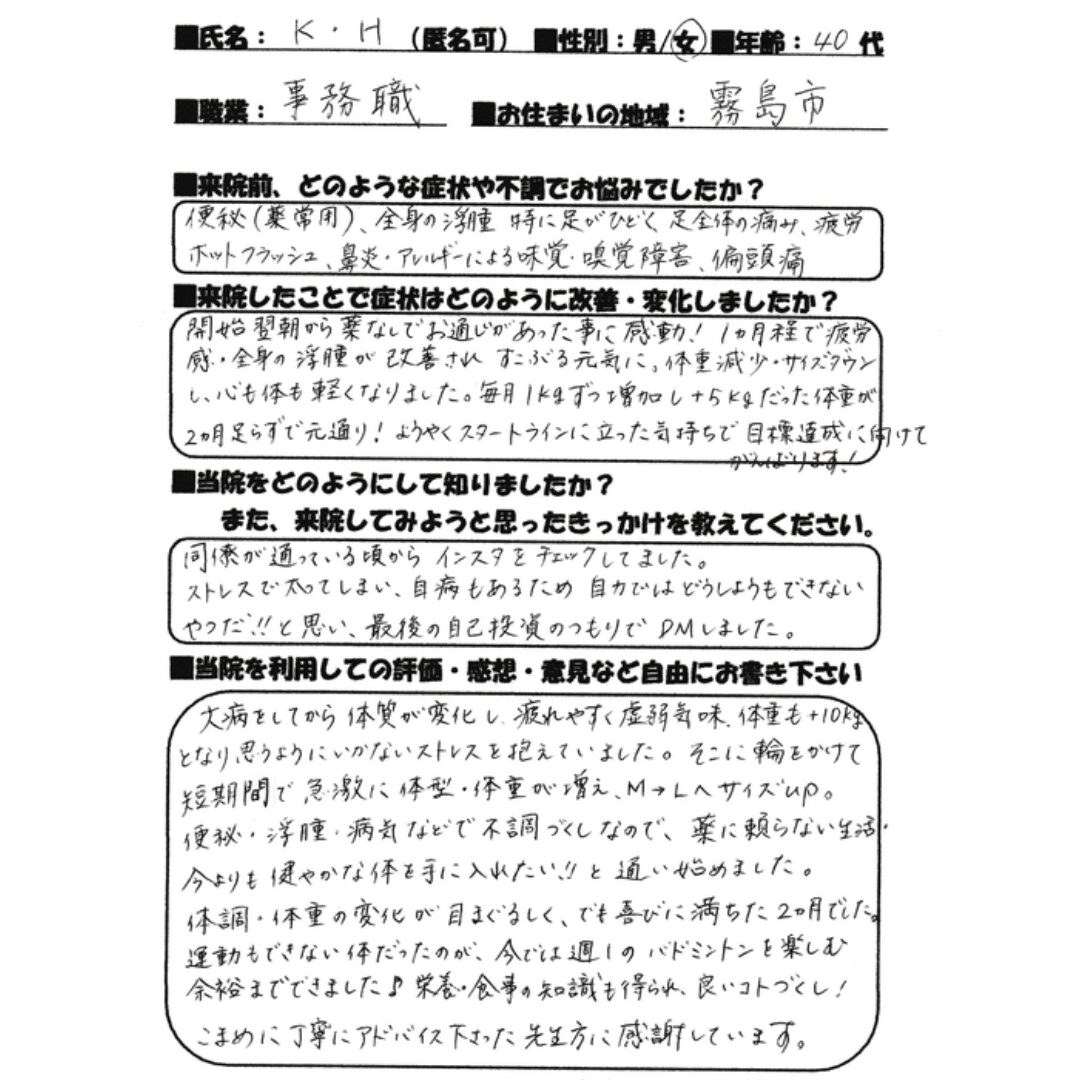 ■氏名：K・H（匿名可）■性別：男/女■年齢：40代
■職業：事務職 ■お住まいの地域：霧島市
■来院前、どのような症状や不調でお悩みでしたか？
便秘（薬常用）、全身の浮腫 特に足がひどく 足全体の痛み、疲労
ホットフラッシュ、鼻炎・アレルギーによる味覚・嗅覚障害、偏頭痛
■来院したことで症状はどのように改善・変化しましたか？
開始翌朝から薬なしでお通じがあった事に感動！1ヵ月程で疲労
感・全身の浮腫が改善され すこぶる元気に。体重減少・サイズダウン
し、心も体も軽くなりました。毎月1kgずつ増加し+5kgだった体重が
2ヵ月足らずで元通り！ようやくスタートラインに立った気持ちで目標達成に向けて
がんばります！
■当院をどのようにして知りましたか？
また、来院してみようと思ったきっかけを教えてください。
同僚が通っている頃から インスタをチェックしてました。
ストレスで太ってしまい、自病もあるため 自力ではどうしようもできない
やつだ!!と思い、最後の自己投資のつもりでDMしました。
■当院を利用しての評価・感想・意見など自由にお書き下さい
大病をしてから体質が変化し、疲れやすく虚弱気味、体重も+10kg
となり、思うようにいかないストレスを抱えていました。そこに輪をかけて
短期間で急激に体型・体重が増え、M→LへサイズUP。
便秘・浮腫・病気などで不調づくしなので、薬に頼らない生活・
今よりも健やかな体を手に入れたい!!と通い始めました。
体調・体重の変化が目まぐるしく、でも喜びに満ちた2ヵ月でした。
運動もできない体だったのが、今では週1のバドミントンを楽しむ
余裕までできました♪栄養・食事の知識も得られ、良いコトづくし！
こまめに丁寧にアドバイス下さった先生方に感謝しています。